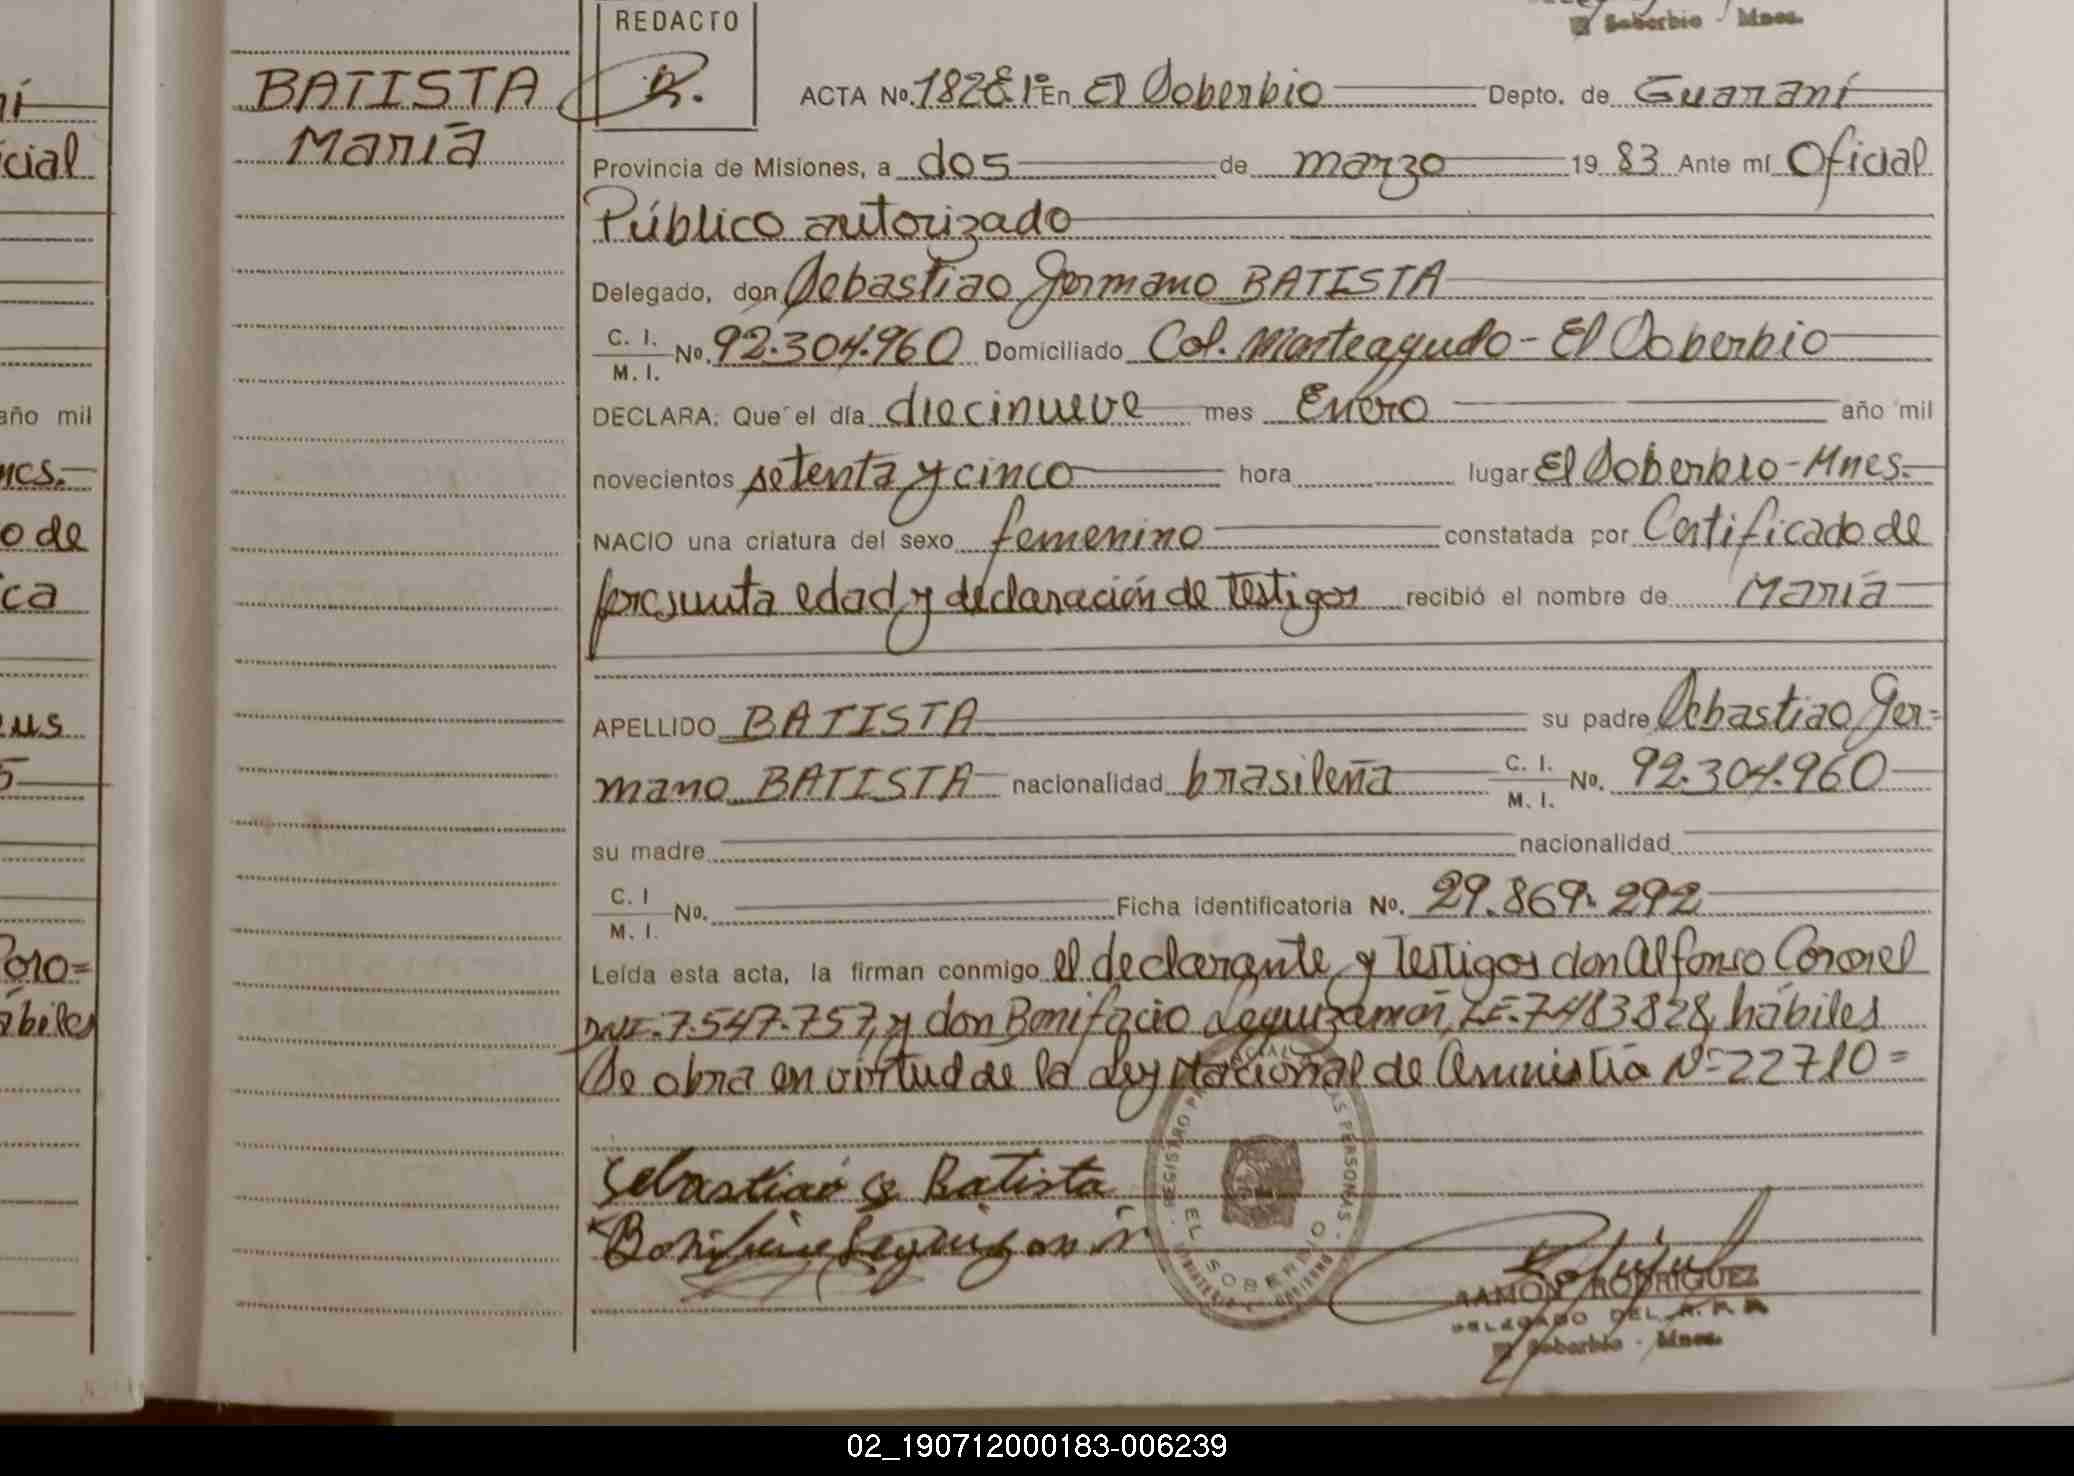 Soberbio - Mnes.
REDACTO
R.
BATISTA
María
ACTA Nº. 182 En El Soberbio Depto. de Guaraní
Provincia de Misiones, a dos de marzo 19 83 Ante mí Oficial
Público autorizado
Delegado, don Sebastiao Germano BATISTA
C. I.
M. I. Nº. 92.304.960 Domiciliado Col. Monteagudo - El Soberbio
DECLARA: Que el día diecinueve mes Enero año mil
novecientos setenta y cinco hora lugar El Soberbio - Mnes.
NACIO una criatura del sexo femenino constatada por Certificado de
presunta edad y declaración de testigos recibió el nombre de María
APELLIDO BATISTA su padre Sebastiao Ger=
mano BATISTA nacionalidad brasileña C. I. M. I. Nº. 92.304.960
su madre nacionalidad
C. I M. I. Nº. Ficha identificatoria Nº. 29.869.292
Leída esta acta, la firman conmigo el declarante y testigos don Alfonso Coronel
DNI. 7.547.757, y don Bonifacio Leguizamón, LE. 7.483.828, hábiles
Se obra en virtud de la Ley Nacional de Amnistía Nº 22710=
Sebastiao G Batista
Bonifacio Leguizamón
REGISTRO PROVINCIAL DE LAS PERSONAS
EL SOBERBIO
MINISTERIO DE GOBIERNO
RAMON RODRIGUEZ
DELEGADO DEL R. P. P.
El Soberbio - Mnes.
ní
icial
año mil
nes.
o de
ica
eus
5
Poro=
ábiles
02_190712000183-006239